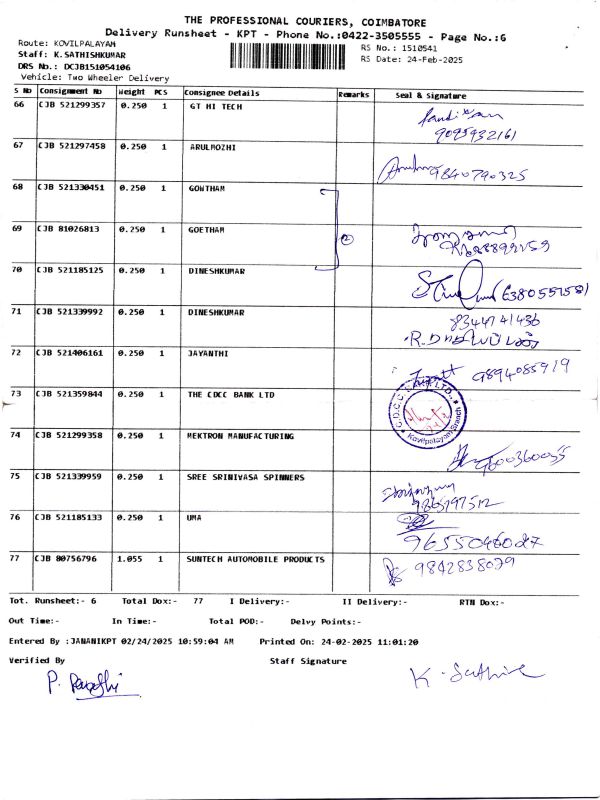 THE PROFESSIONAL COURIERS, COIMBATORE
Delivery Runsheet - KPT - Phone No.:0422-3505555 - Page No.:6
Route: KOVILPALAYAM
Staff: K.SATHISHKUMAR
DRS No.: DCJB151054106
Vehicle: Two Wheeler Delivery
RS No.: 1510541
RS Date: 24-Feb-2025
S No Consignment No Weight PCS Consignee Details Remarks Seal & Signature
66 CJB 521299357 0.250 1 GT HI TECH
9095932161
67 CJB 521297458 0.250 1 ARULMOZHI
9840790325
68 CJB 521330451 0.250 1 GOWTHAM
69 CJB 81026813 0.250 1 GOETHAM
2
70 CJB 521185125 0.250 1 DINESHKUMAR
71 CJB 521339992 0.250 1 DINESHKUMAR
8344741436
72 CJB 521406161 0.250 1 JAYANTHI
9894085919
73 CJB 521359844 0.250 1 THE CDCC BANK LTD
C.D.C.C. BANK LTD.,
Kovilpalayam Branch
74 CJB 521299358 0.250 1 MEKTRON MANUFACTURING
9600360055
75 CJB 521339959 0.250 1 SREE SRINIVASA SPINNERS
76 CJB 521185133 0.250 1 UMA
9655046027
77 CJB 80756796 1.055 1 SUNTECH AUTOMOBILE PRODUCTS
9842838079
Tot. Runsheet:- 6 Total Dox:- 77 I Delivery:- II Delivery:- RTN Dox:-
Out Time:- In Time:- Total POD:- Delvy Points:-
Entered By :JANANIKPT 02/24/2025 10:59:04 AM Printed On: 24-02-2025 11:01:20
Verified By Staff Signature